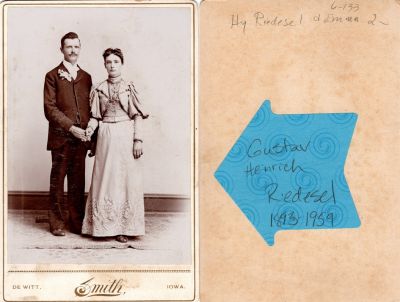 DE WITT, Smith, IOWA.
6-133
Hy Riedesel & Emma 2
Gustav
Henrich
Riedesel
1893-1959